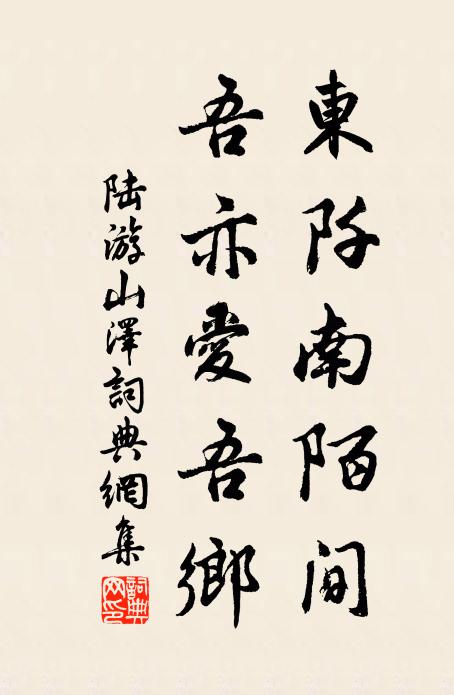 東阡南陌间
吾亦愛吾鄉
陆游山澤詞典網集
詞典网印